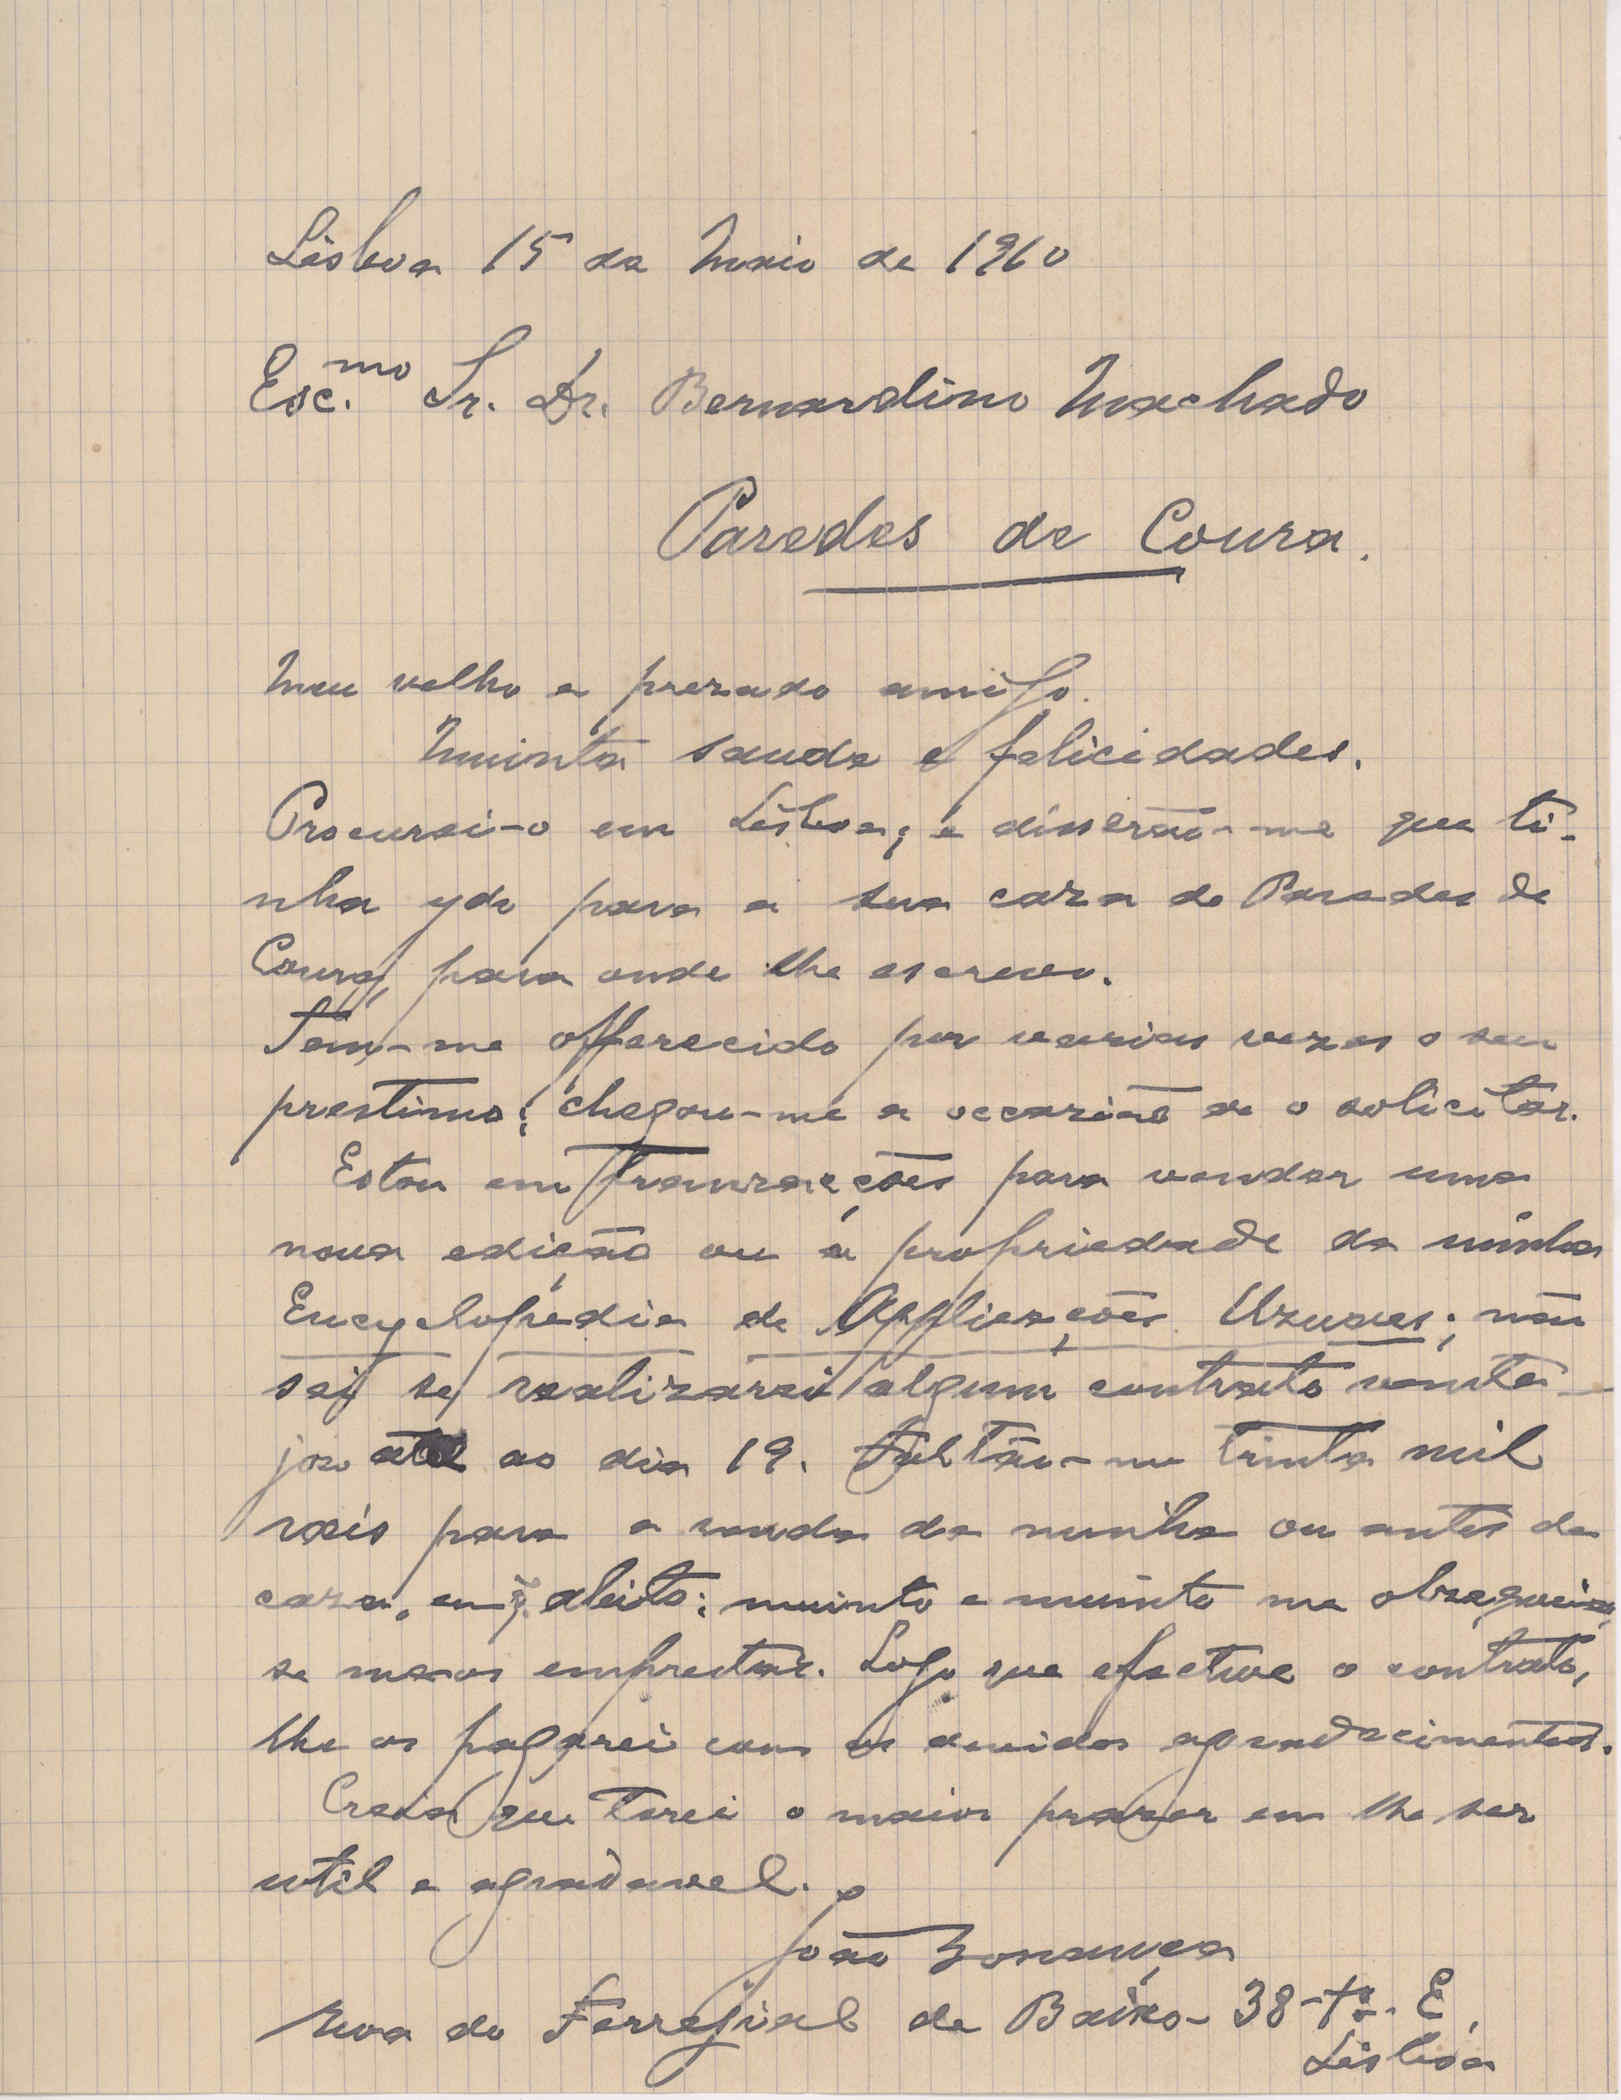 Lisboa 15 de Maio de 1910
Esc.mo Sr. Dr. Bernardino Machado
Paredes de Coura.
Meu velho e prezado amigo.
Muinta saude e felicidades.
Procurei-o em Lisboa; e disserão-me que ti-
nha ydo para a sua caza de Paredes de
Coura, para onde lhe escrevo.
Tem-me offerecido por varias vezes o seu
prestimo; chegou-me a occazião de o solicitar.
Estou em tranzacções para vender uma
nova edição ou a propriedade da minha
Encyclopédia de Applicações Uzuaes; não
sei se realizarei algum contrato vanta-
jozo até ao dia 19. Faltão-me trinta mil
reis para a renda da minha ou antes da
caza, em q̃. abito; muinto e muinto me obzequeia,
se me os emprestar. Logo que efective o contrato,
lhe os pagarei com os devidos agradecimentos.
Creia que terei o maior prazer em lhe ser
util e agradavel.
João Bonança
Rua do Ferregial de Baixo - 38 - E.
Lisboa